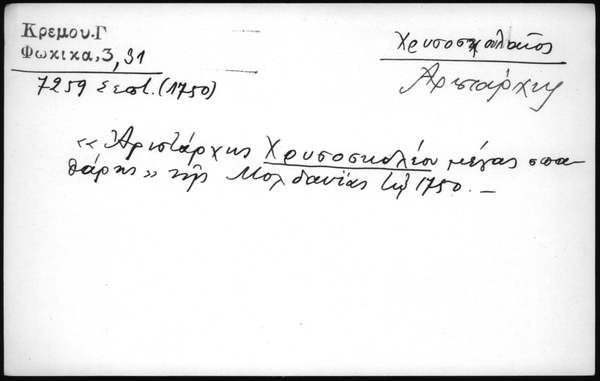 Κρεμου.Γ
Φωκικα,3,31
7259 Σεπτ. (1750)
Χρυσοσκολαῖος
Αριστάρχης
« Ἀριστάρχης Χρυσοσκολέου μέγας σπα-
θάρης» τῆς Μολδαυΐας τῷ 1750. –